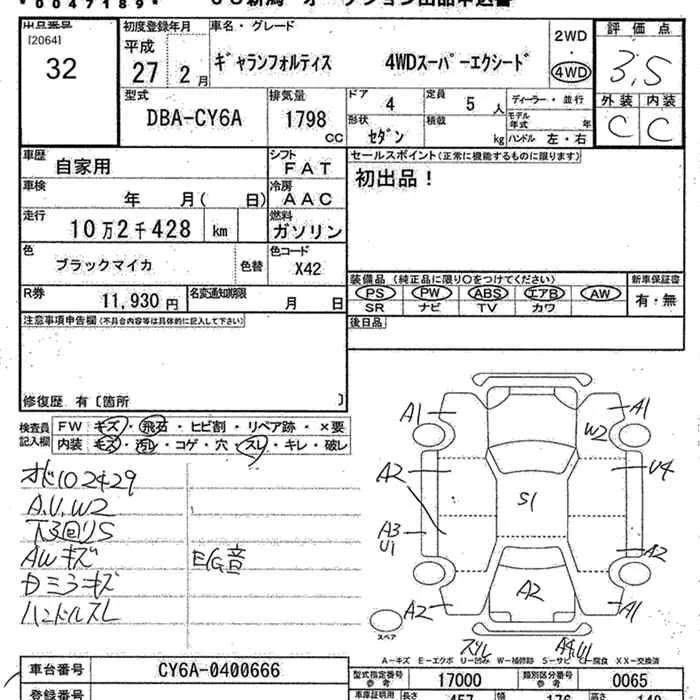 *0047189*
[2064]
32
初度登録年月
平成
27 2 月
車名・グレード
ギャランフォルティス 4WDスーパーエクシード
2WD
・
4WD
評価点
3,5
外装 内装
C C
型式
DBA-CY6A
排気量
1798
CC
ドア
4
定員
5 人
ディーラー・並行
モデル
年式 年
形状
セダン
積載
kg
ハンドル 左・右
車歴
自家用
シフト
FAT
セールスポイント(正常に機能するものに限ります)
初出品!
車検
年 月( 日)
冷房
AAC
走行
10万2千428 km
燃料
ガソリン
色
ブラックマイカ
色替
色コード
X42
装備品 (純正品に限り〇をつけてください)
新車保証書
PS PW ABS エアB AW
有・無
SR ナビ TV カワ
R券
11,930 円
名変通知期限
月 日
後日品
注意事項申告欄(不具合内容等は具体的に記入して下さい)
修復歴 有〔箇所 〕
検査員
記入欄
FW キズ・飛石・ヒビ割・リペア跡・×要
内装 キズ・汚レ・コゲ・穴・スレ・キレ・破レ
オド102429
A.U.W2
下回りS
AWキズ
E/G音
ドミラキズ
ハンドルスレ
A1
A1
W2
A2
U4
S1
A3
U1
A2
A2
A2
A1
スペア
スリレ
A4,U1
A-キズ E-エクボ U-凹み W-補修跡 S-サビ C-腐食 XX-交換済
車台番号
CY6A-0400666
型式指定番号
参考
17000
類別区分番号
参考
0065
登録番号
車庫証明用
長さ
457
幅
176
高さ
149